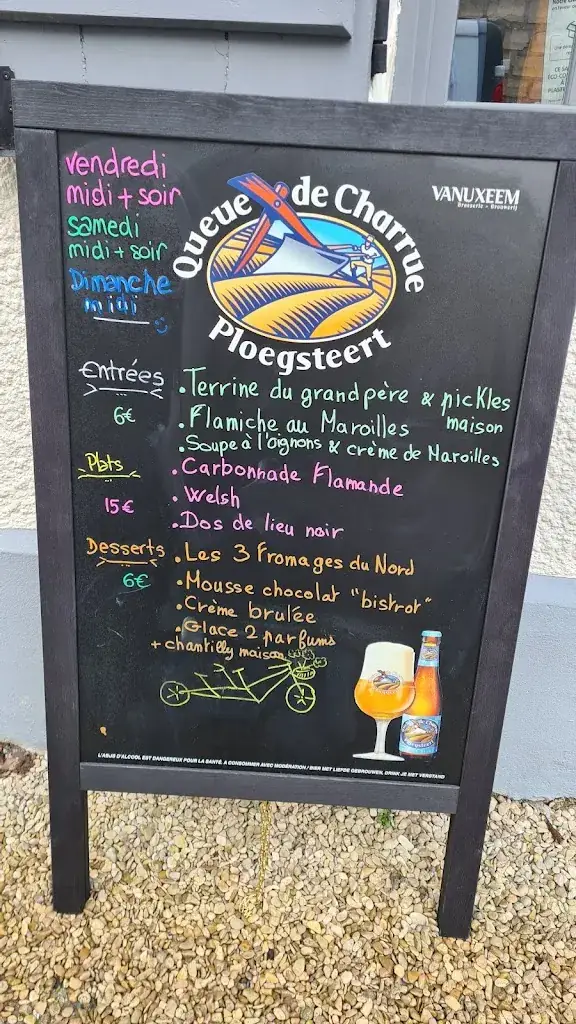 vendredi
midi + soir
samedi
midi + soir
Dimanche
midi
Queue de Charrue
Ploegsteert
VANUXEEM
Brasserie - Brouwerij
Entrées
6€
. Terrine du grand père & pickles
maison
. Flamiche au Maroilles
. Soupe à l'oignons & crème de Maroilles
Plats
15€
. Carbonnade Flamande
. Welsh
. Dos de lieu noir
Desserts
6€
. Les 3 fromages du Nord
. Mousse chocolat "bistrot"
. Crème brulée
. Glace 2 parfums
+ chantilly maison
L'ABUS D'ALCOOL EST DANGEREUX POUR LA SANTÉ, A CONSOMMER AVEC MODÉRATION / BIER MET LIEFDE GEBROUWEN, DRINK JE MET VERSTAND